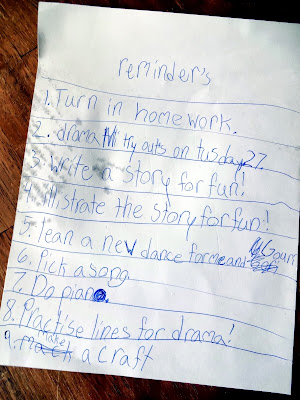 reminder's
1. Turn in homework.
2. drama try outs on tusday 27.
3. Write a story for fun!
4. Illstrate the story for fun!
5. lean a new dance for me and
6. Pick a song
7. Do piano.
8. Practise lines for drama!
9. make a craft